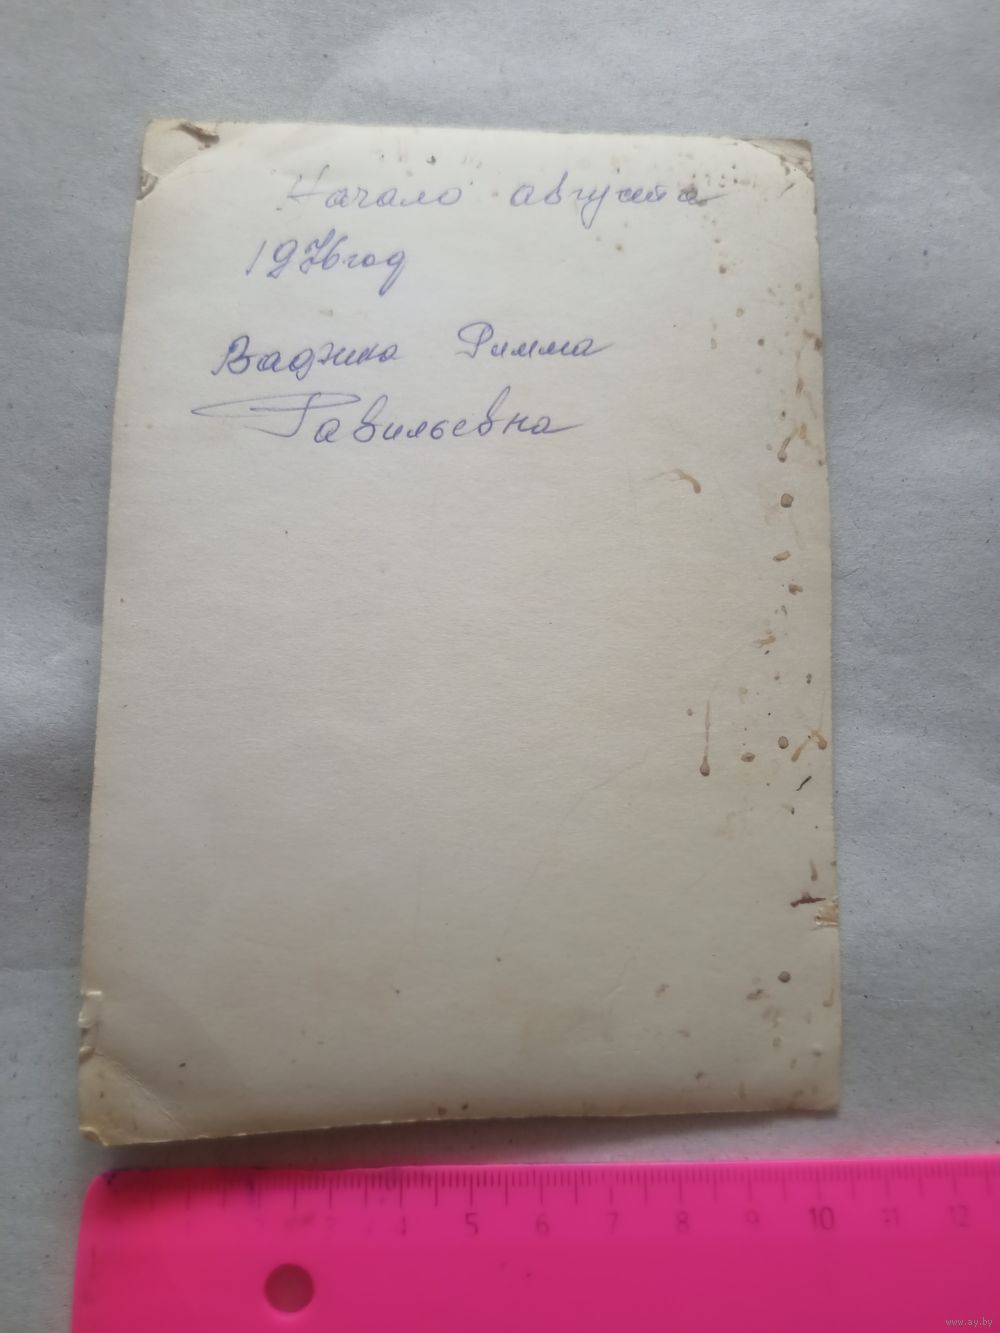 Начало августа
1976 год
Римма
Равильевна
4 5 6 7 8 9 10 11 12
www.ay.by